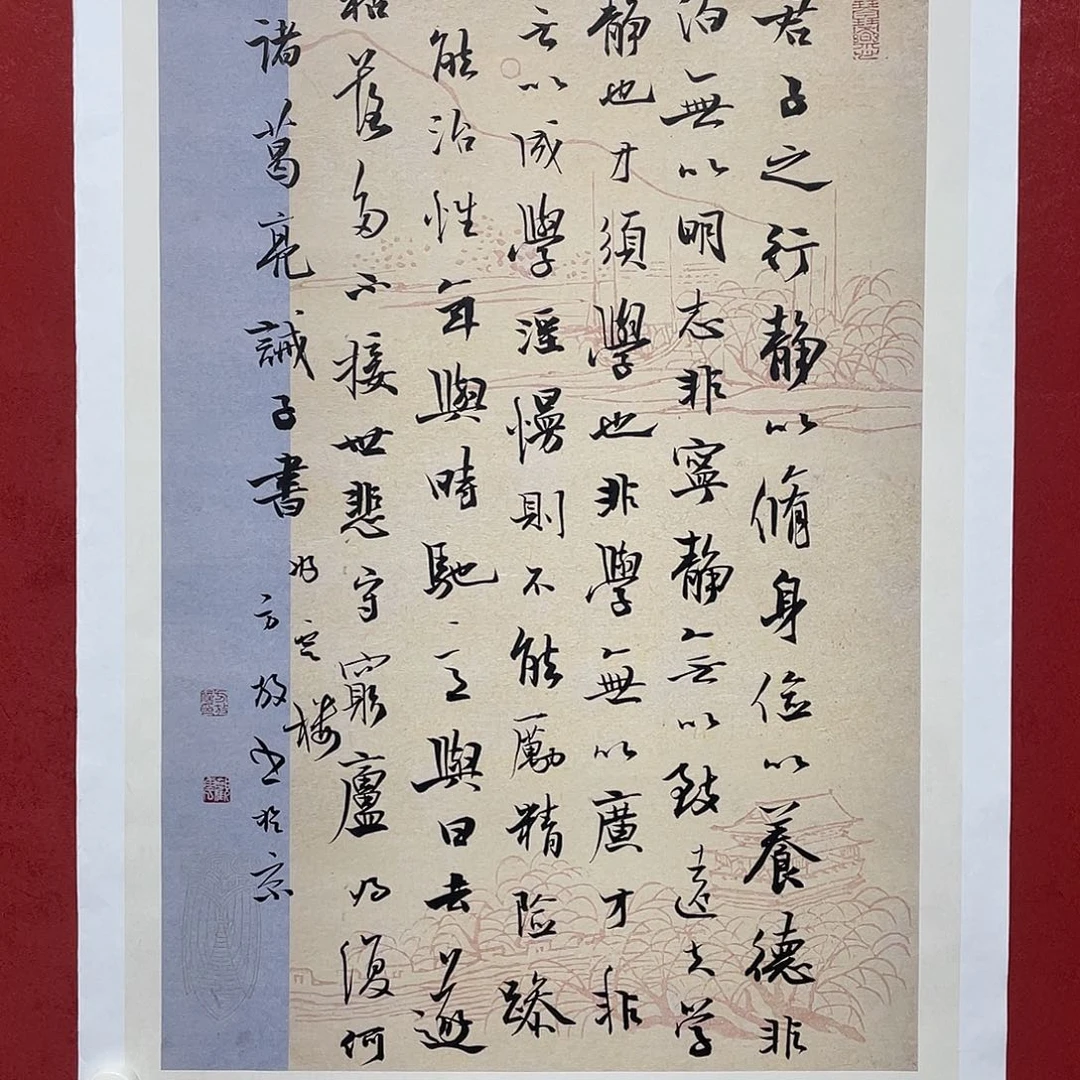 君子之行静以脩身俭以養德非
泊無以明志非寧静無以致遠夫学
静也才須學也非學無以廣才非
无以成學淫慢則不能勵精险躁
能治性年與時馳意與日去遂
枯落多不接世悲守窮廬将復何
诸葛亮誡子書 方放书於京